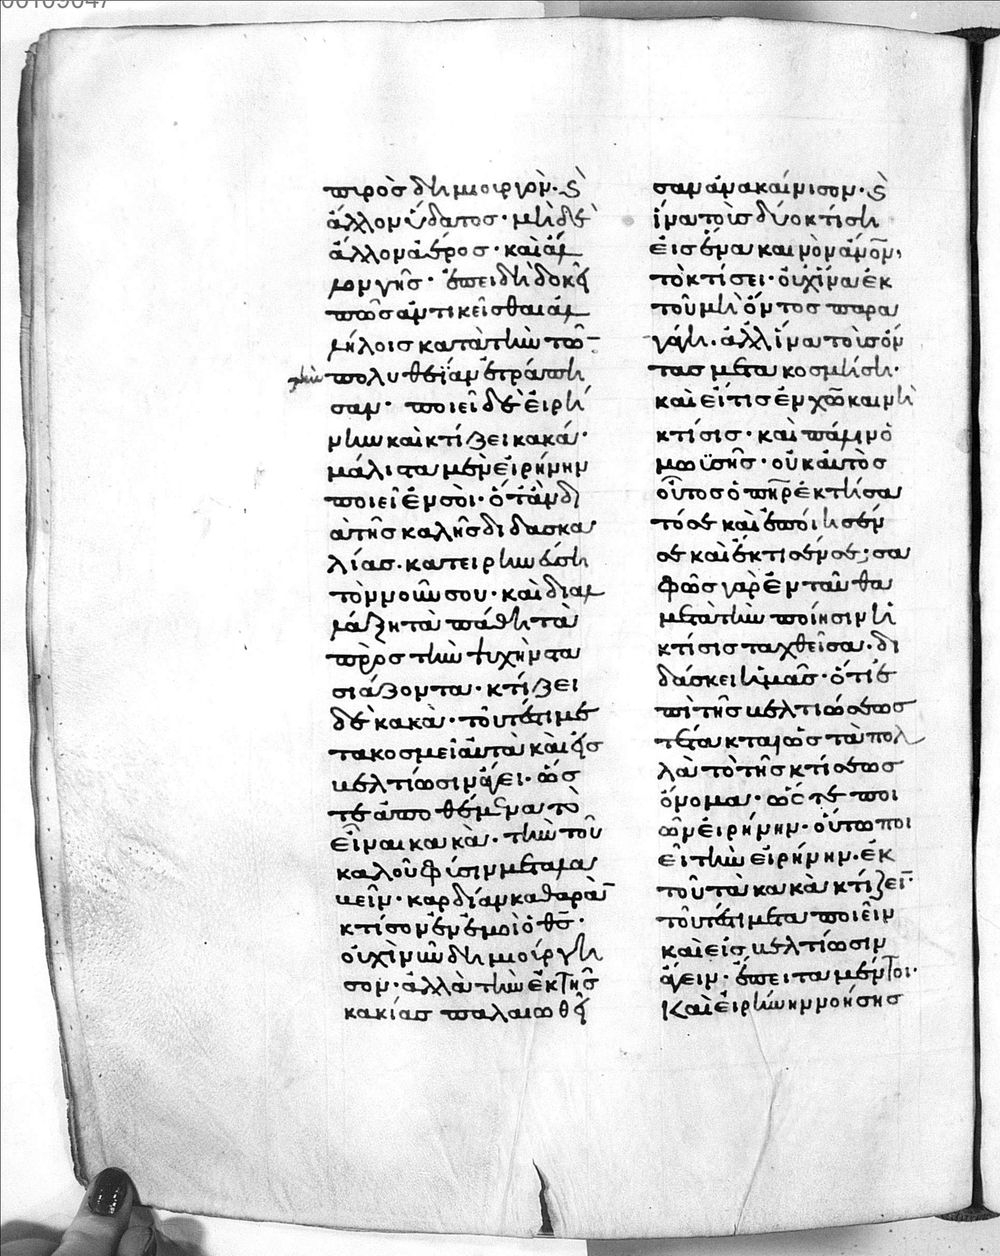 πυρὸς δημιουργὸν· καὶ
ἄλλον ὕδατος· μὴ δὲ
ἄλλον ἀέρος· καὶ ἄλ
λον γῆς· ἐπειδὴ δοκεῖ
πῶς ἀντικεῖσθαι ἀλ
λήλοις κατὰ τὴν τῶν
τὴν πολυθεΐαν ἀνατρέπ
σαν· ποιεῖ δὲ εἰρή
νην καὶ κτίζει κακά·
μάλιστα μὲν εἰρήνην
ποιεῖ ἐν σοὶ· ὅταν δι
ὰ τῆς καλῆς διδασκα
λίας· κατειρηνεύση
τὸν νοῦν σου· καὶ διαλ
λάξη τὰ πάθη τὰ
πρὸς τὴν ψυχὴν στα
σιάζοντα· κτίζει
δὲ κακὰ· τουτέστι με
τακοσμεῖ αὐτὰ καὶ εἰς
βελτίωσιν ἄγει· ὥς
τε ἀποθέμενα τὸ
εἶναι κακὰ· τὴν τοῦ
καλοῦ φύσιν μεταλα
βεῖν· καρδίαν καθαρὰν
κτίσον ἐν ἐμοὶ ὁ θς·
οὐχὶ νῦν δημιούργη
σον· ἀλλὰ τὴν ἐκ τῆς
κακίας παλαιωθεῖ
σαν ἀνακαίνισον· καὶ
ἵνα τοὺς δύο κτίση
εἰς ἕνα καινὸν ἄνον,
τὸ κτίσει· οὐχ ἵνα ἐκ
τοῦ μὴ ὄντος παρα
γάγη· ἀλλ' ἵνα τοὺς ὄν
τας μετακοσμήση·
καὶ εἴ τις ἐν χῶ καινὴ
κτίσις· καὶ πάλιν ὁ
μωϋσῆς· οὐκ αὐτὸς
οὗτος ὁ πηρ ἐκτήσα
τό σε καὶ ἐποίησέν
σε καὶ ἔκτισέν σε; σα
φῶς γὰρ ἐνταῦθα
μετὰ τὴν ποίησιν ἡ
κτίσις ταχθεῖσα· δι
δάσκει ἡμᾶς· ὅτι ἐ
πὶ τῆς βελτιώσεως
τέτακται ὡς τὰ πολ
λὰ τὸ τῆς κτίσεως
ὄνομα· ὥς τε ποι
ῶν εἰρήνην· οὕτω ποι
εῖ τὴν εἰρήνην· ἐκ
τοῦ τὰ κακὰ κτίζειν·
τουτέστι μεταποιεῖν
καὶ εἰς βελτίωσιν
ἄγειν· ἔπειτα μέντοι·
Καὶ εἰρήνην νοήσης